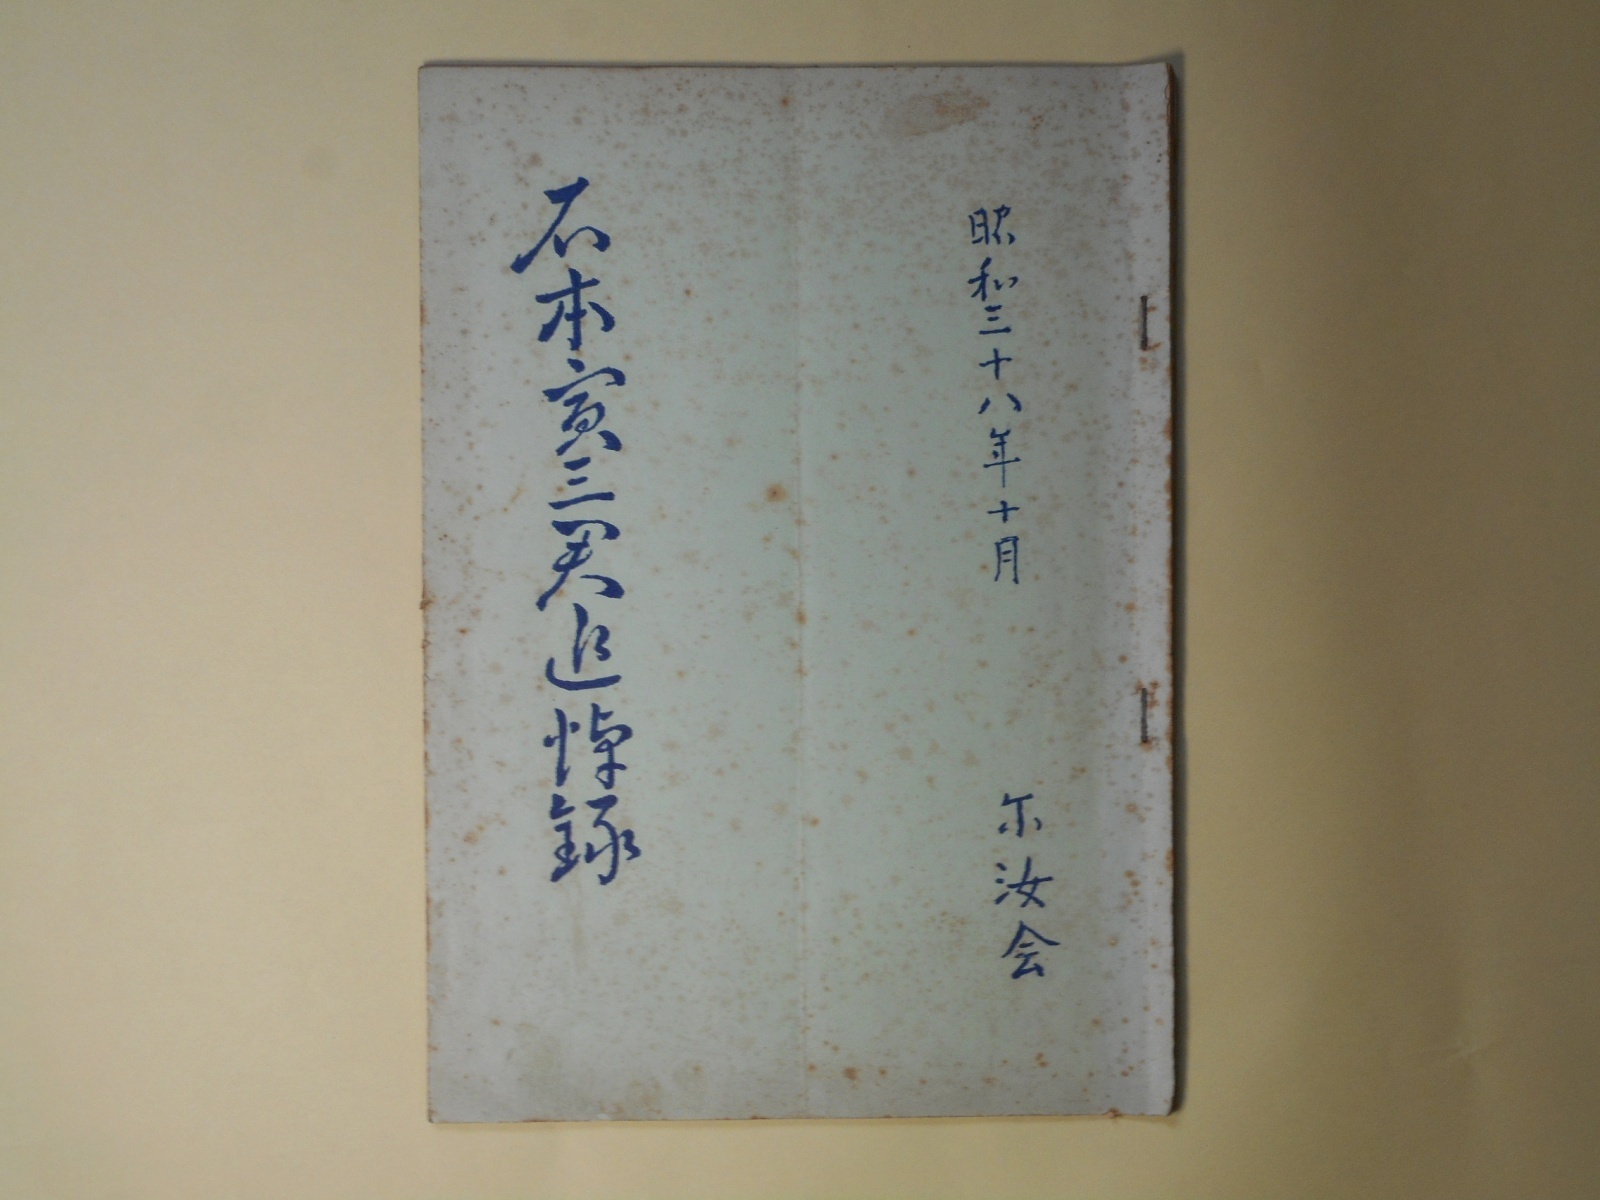 昭和三十八年十月
尓汝会
石本寅三君追悼録